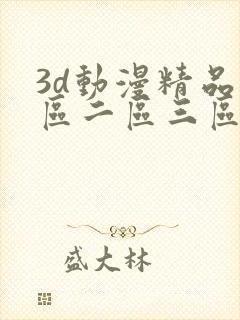 3d動漫精品
區二區三區
盛大林